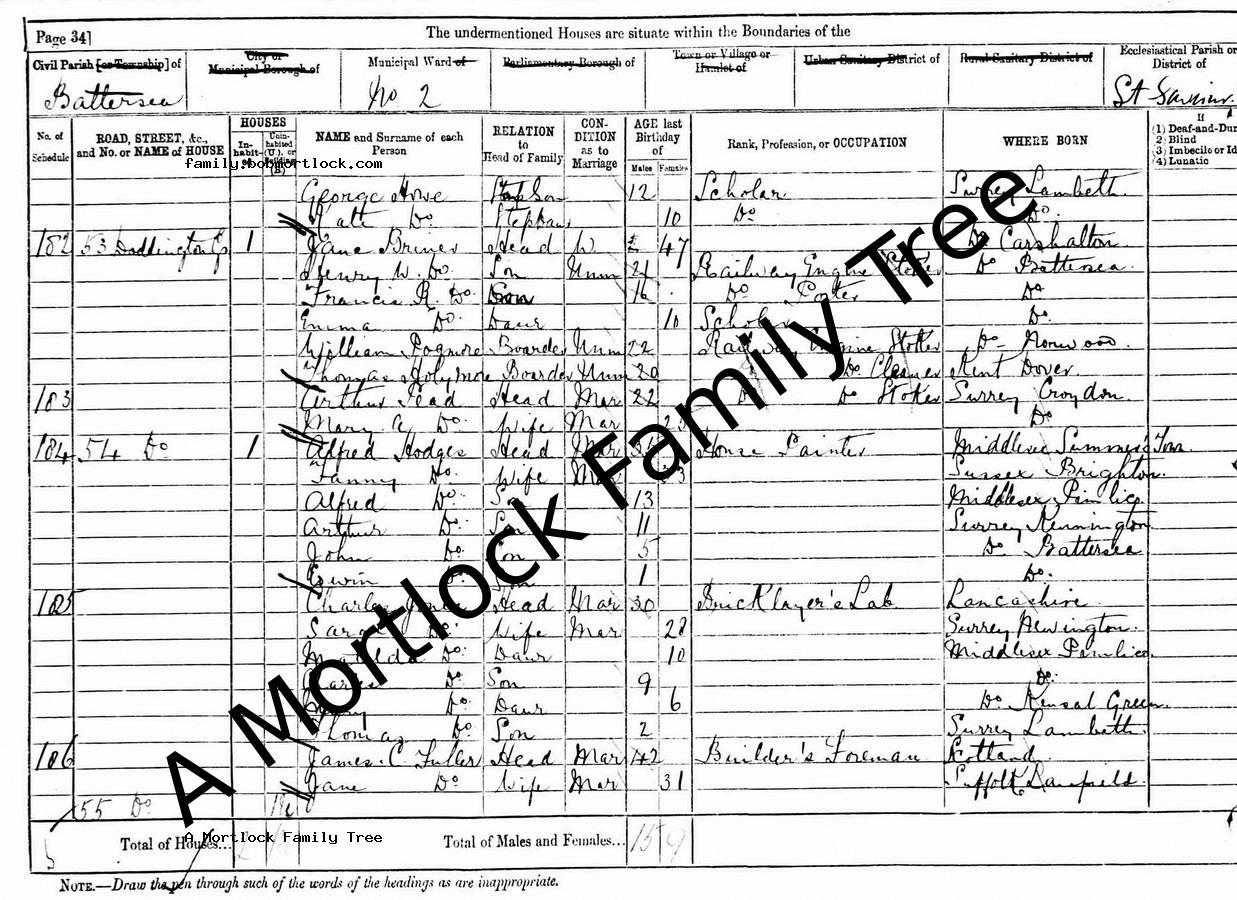 Page 34]
The undermentioned Houses are situate within the Boundaries of the
Civil Parish [or Township] of
City or Municipal Borough of
Municipal Ward of
Parliamentary Borough of
Town or Village or Hamlet of
Urban Sanitary District of
Rural Sanitary District of
Ecclesiastical Parish or District of
Battersea
No 2
St Saviour
No. of Schedule
ROAD, STREET, &c., and No. or NAME of HOUSE
HOUSES
In-habit-ed
Unin-habited (U.), or Building (B.)
NAME and Surname of each Person
RELATION to Head of Family
CON-DITION as to Marriage
AGE last Birthday of
Males
Females
Rank, Profession, or OCCUPATION
WHERE BORN
If
(1) Deaf-and-Dum
(2) Blind
(3) Imbecile or Id
(4) Lunatic
family.bobmortlock.com
George Howe Step Son 12 Scholar Surrey Lambeth
Kate Do Stepdaur 10 Do Do
182 53 Doddington Gr 1 Jane Briner Head W 47 Do Carshalton
Henry W. Do Son Unm 21 Railway Engine Stoker Do Battersea
Francis R. Do Son 16 Do Porter Do
Emma Do Daur 10 Scholar Do
William Pogmore Boarder Unm 22 Railway Engine Stoker Do Norwood
Thomas Holymore Boarder Unm 20 Do Cleaner Kent Dover
183 Arthur Head Mar 22 Do Do Stoker Surrey Croydon
Mary A Do Wife Mar Do
184 54 Do 1 Alfred Hodges Head Mar House Painter Middlesex Summers Town
Fanny Do Wife Mar Sussex Brighton
Alfred Do Son 13 Middlesex Pimlico
Arthur Do Son 11 Surrey Kennington
John Do Son 5 Do Battersea
Edwin Do Son 1 Do
185 Charles Head Mar 30 Bricklayer's Lab Lancashire
Sarah Do Wife Mar 28 Surrey Newington
Matilda Do Daur 10 Middlesex Pimlico
Charles Son 9 Do
Do Daur 6 Do Kensal Green
Thomas Do Son 2 Surrey Lambeth
186 James C Fuller Head Mar 42 Builder's Foreman Scotland
Jane Do Wife Mar 31 Suffolk
55 Do
Total of Houses...
A Mortlock Family Tree
Total of Males and Females... 15 9
NOTE.—Draw the pen through such of the words of the headings as are inappropriate.
A Mortlock Family Tree